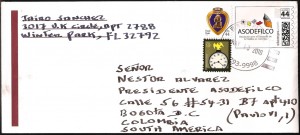 Tairo Sanchez
3017 U.K Circle, Apt 2788
Winter Park, FL 32792
44
ASODEFILCO
SEÑOR
NESTOR ALVAREZ
PRESIDENTE ASODEFILCO
CALLE 56 #54-31 BT APT 410
BOGOTA D.C (PAULO VI, I)
COLOMBIA
SOUTH AMERICA